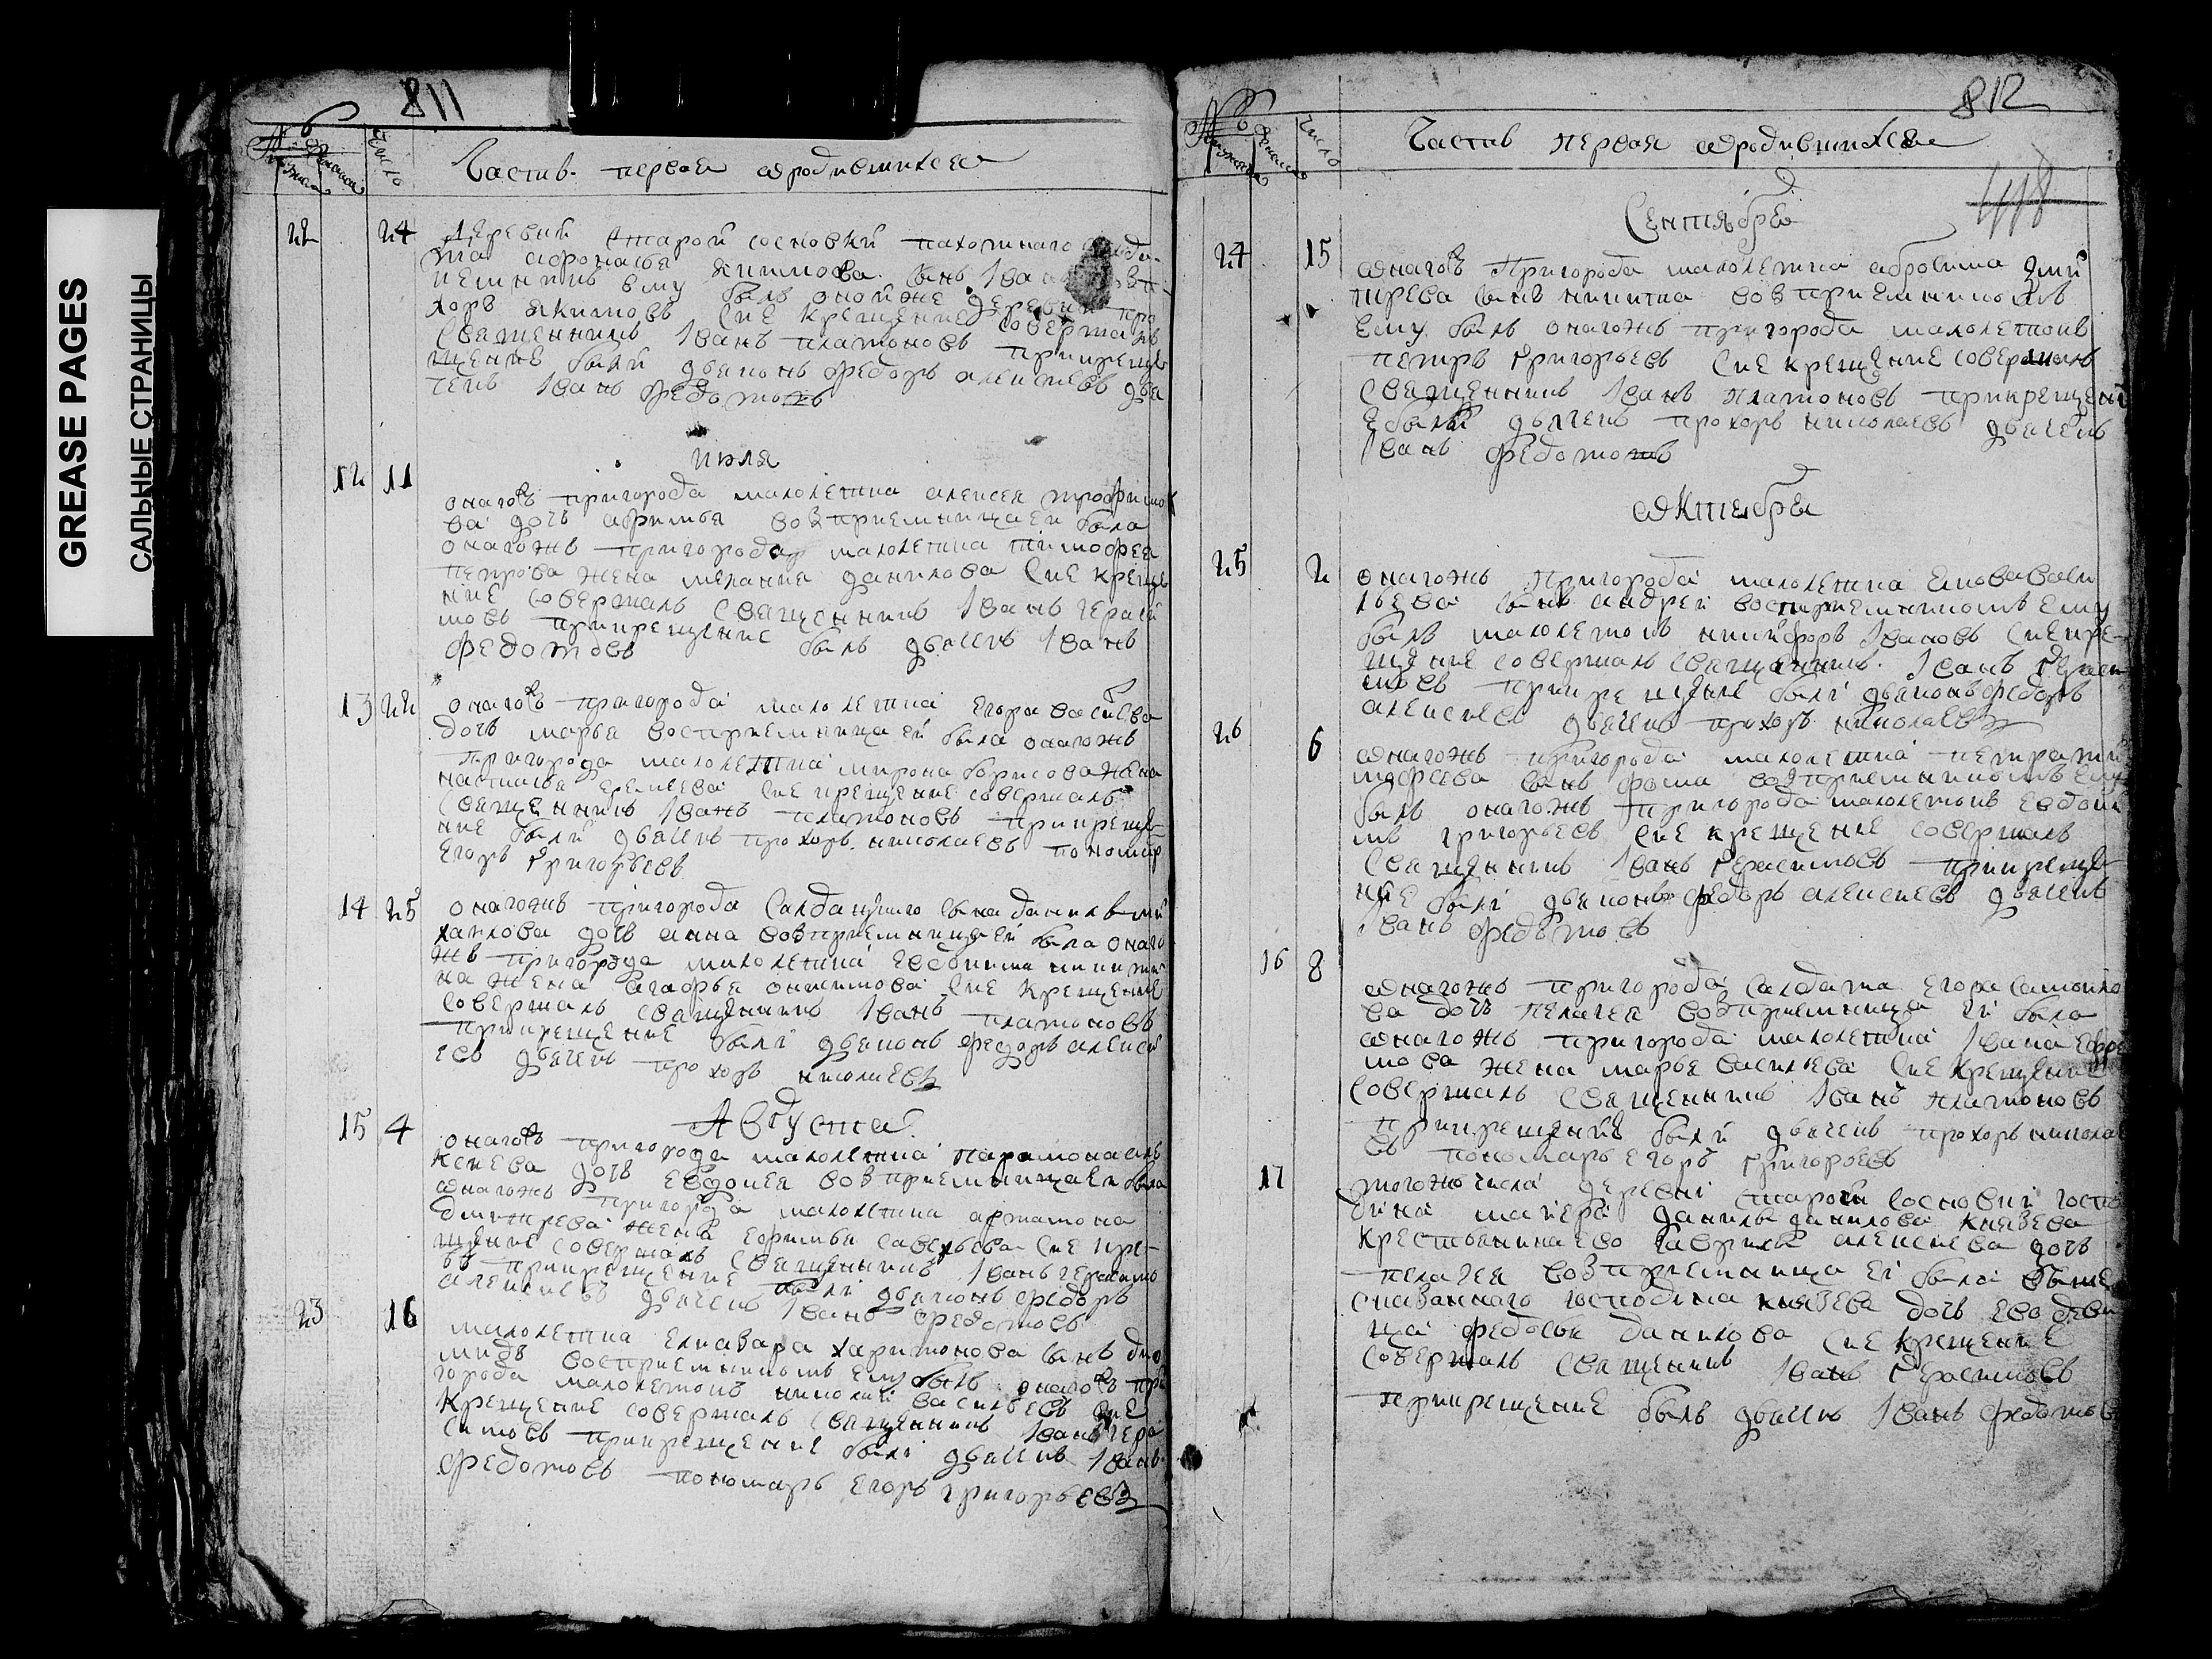 GREASE PAGES
САЛЬНЫЕ СТРАНИЦЫ
811
Числo
Часть первая ѡродившихся
22 24 деревни Старой сосновки пахотнаго
та афонасья якимова сынъ Iва
иемникъ ему былъ оной же деревни про
хоръ якимовъ Сие крещение совершалъ
Священникъ Iванъ платоновъ прикреще
щение были дьяконъ федоръ алексеевъ дья
чекъ Iванъ федотовъ
июля
12 11
онагожъ пригорода малолетка алексея трофимо
ва дочь афимья возприемницаеи была
онагожъ пригорода малолетка тимофея
петрова жена мелания данилова Сие креще
ние совершалъ Священникъ Iванъ гераси
мовъ прикрещение былъ дьячекъ Iванъ
федотовъ
13 22 онагожъ пригорода малолетка егора васильева
дочь марья восприемница ей была онагожъ
пригорода малолетка мирона борисова жена
настасья еремеева Сие крещение совершалъ
Священникъ Iванъ платоновъ прикреще
ние были дьячекъ прохоръ николаевъ пономар
егоръ григорьевъ
14 25 онагожъ пригорода Салдацкаго сына данилы ми
хаилова дочь анна возприемницаей была онаго
жъ пригорода малолетка евдокима никити
на жена агафья Сие крещение
совершалъ священникъ Iванъ платоновъ
прикрещение былi дьяконъ федоръ алексе
евъ дьячекъ прохоръ николаевъ
Августа
15 4
онагожъ пригорода малолетка парамона але
ксеева дочь евдокея возприемницаеи была
ѡнагожъ пригорода малолетка артамона
дмитрева жена ефимья савельева Сие кре
щение совершалъ Священникъ Iванъ герасимо
въ прикрещение былi дьяконъ федоръ
алексеевъ дьячекъ Iванъ федотовъ
23 16
малолетка елиазара харитонова сынъ дио
мидъ восприемникомъ ему былъ онагожъ при
города малолетокъ николай васильевъ сие
крещение совершалъ Священникъ Iванъ гера
симовъ прикрещение былi дьячекъ Iванъ
федотовъ пономарь егоръ григорьевъ
812
Число
Часть первая ѡродившихся
498
Сентября
24 15
ѡнагожъ Пригорода малолетка абросима дми
трева сынъ никита возприемникомъ
ему былъ онагожъ пригорода малолетокъ
петръ григорьевъ Сие крещение совершалъ
Священникъ Iванъ платоновъ прикрещенi
е были дьячекъ прохоръ николаевъ дьячекъ
Iванъ федотовъ
ѡктября
25 2
онагожъ Пригорода малолетка
льева сынъ андреи восприемникомъ ему
былъ малолетокъ никифоръ Iвановъ Сие кре
щение совершалъ священникъ Iванъ гераси
мовъ прикрещение былi дьяконъ федоръ
алексеевъ дьячекъ прохоръ николаевъ
26 6
ѡнагожъ пригорода малолетка петра ти
мофеева сынъ фома возприемникомъ ему
былъ онагожъ пригорода малолетокъ евдоки
мъ григорьевъ Сие крещение совершалъ
Священникъ Iванъ герасимовъ прикреще
ние былi дьяконъ федоръ алексеевъ дьячекъ
Iванъ федотовъ
16 8
ѡнагожъ пригорода салдата егора самойло
ва дочь пелагея возприемница ей была
ѡнагожъ пригорода малолетка Iвана ефре
мова жена марья васильева Сие крещение
совершалъ священникъ Iванъ платоновъ
прикрещений были дьячекъ прохоръ никола
евъ пономарь егоръ григорьевъ
17
тогожъ числа деревни старой сосновки госпо
дина данилы данилова князева
крестьянина ево гаврилы алексеева дочь
пелагея возприемница ей была выше
сказаннаго господина князева дочь ево деви
ца федосья данилова Сие крещение
совершалъ священникъ Iванъ герасимовъ
прикрещение былъ дьячекъ Iванъ федотовъ